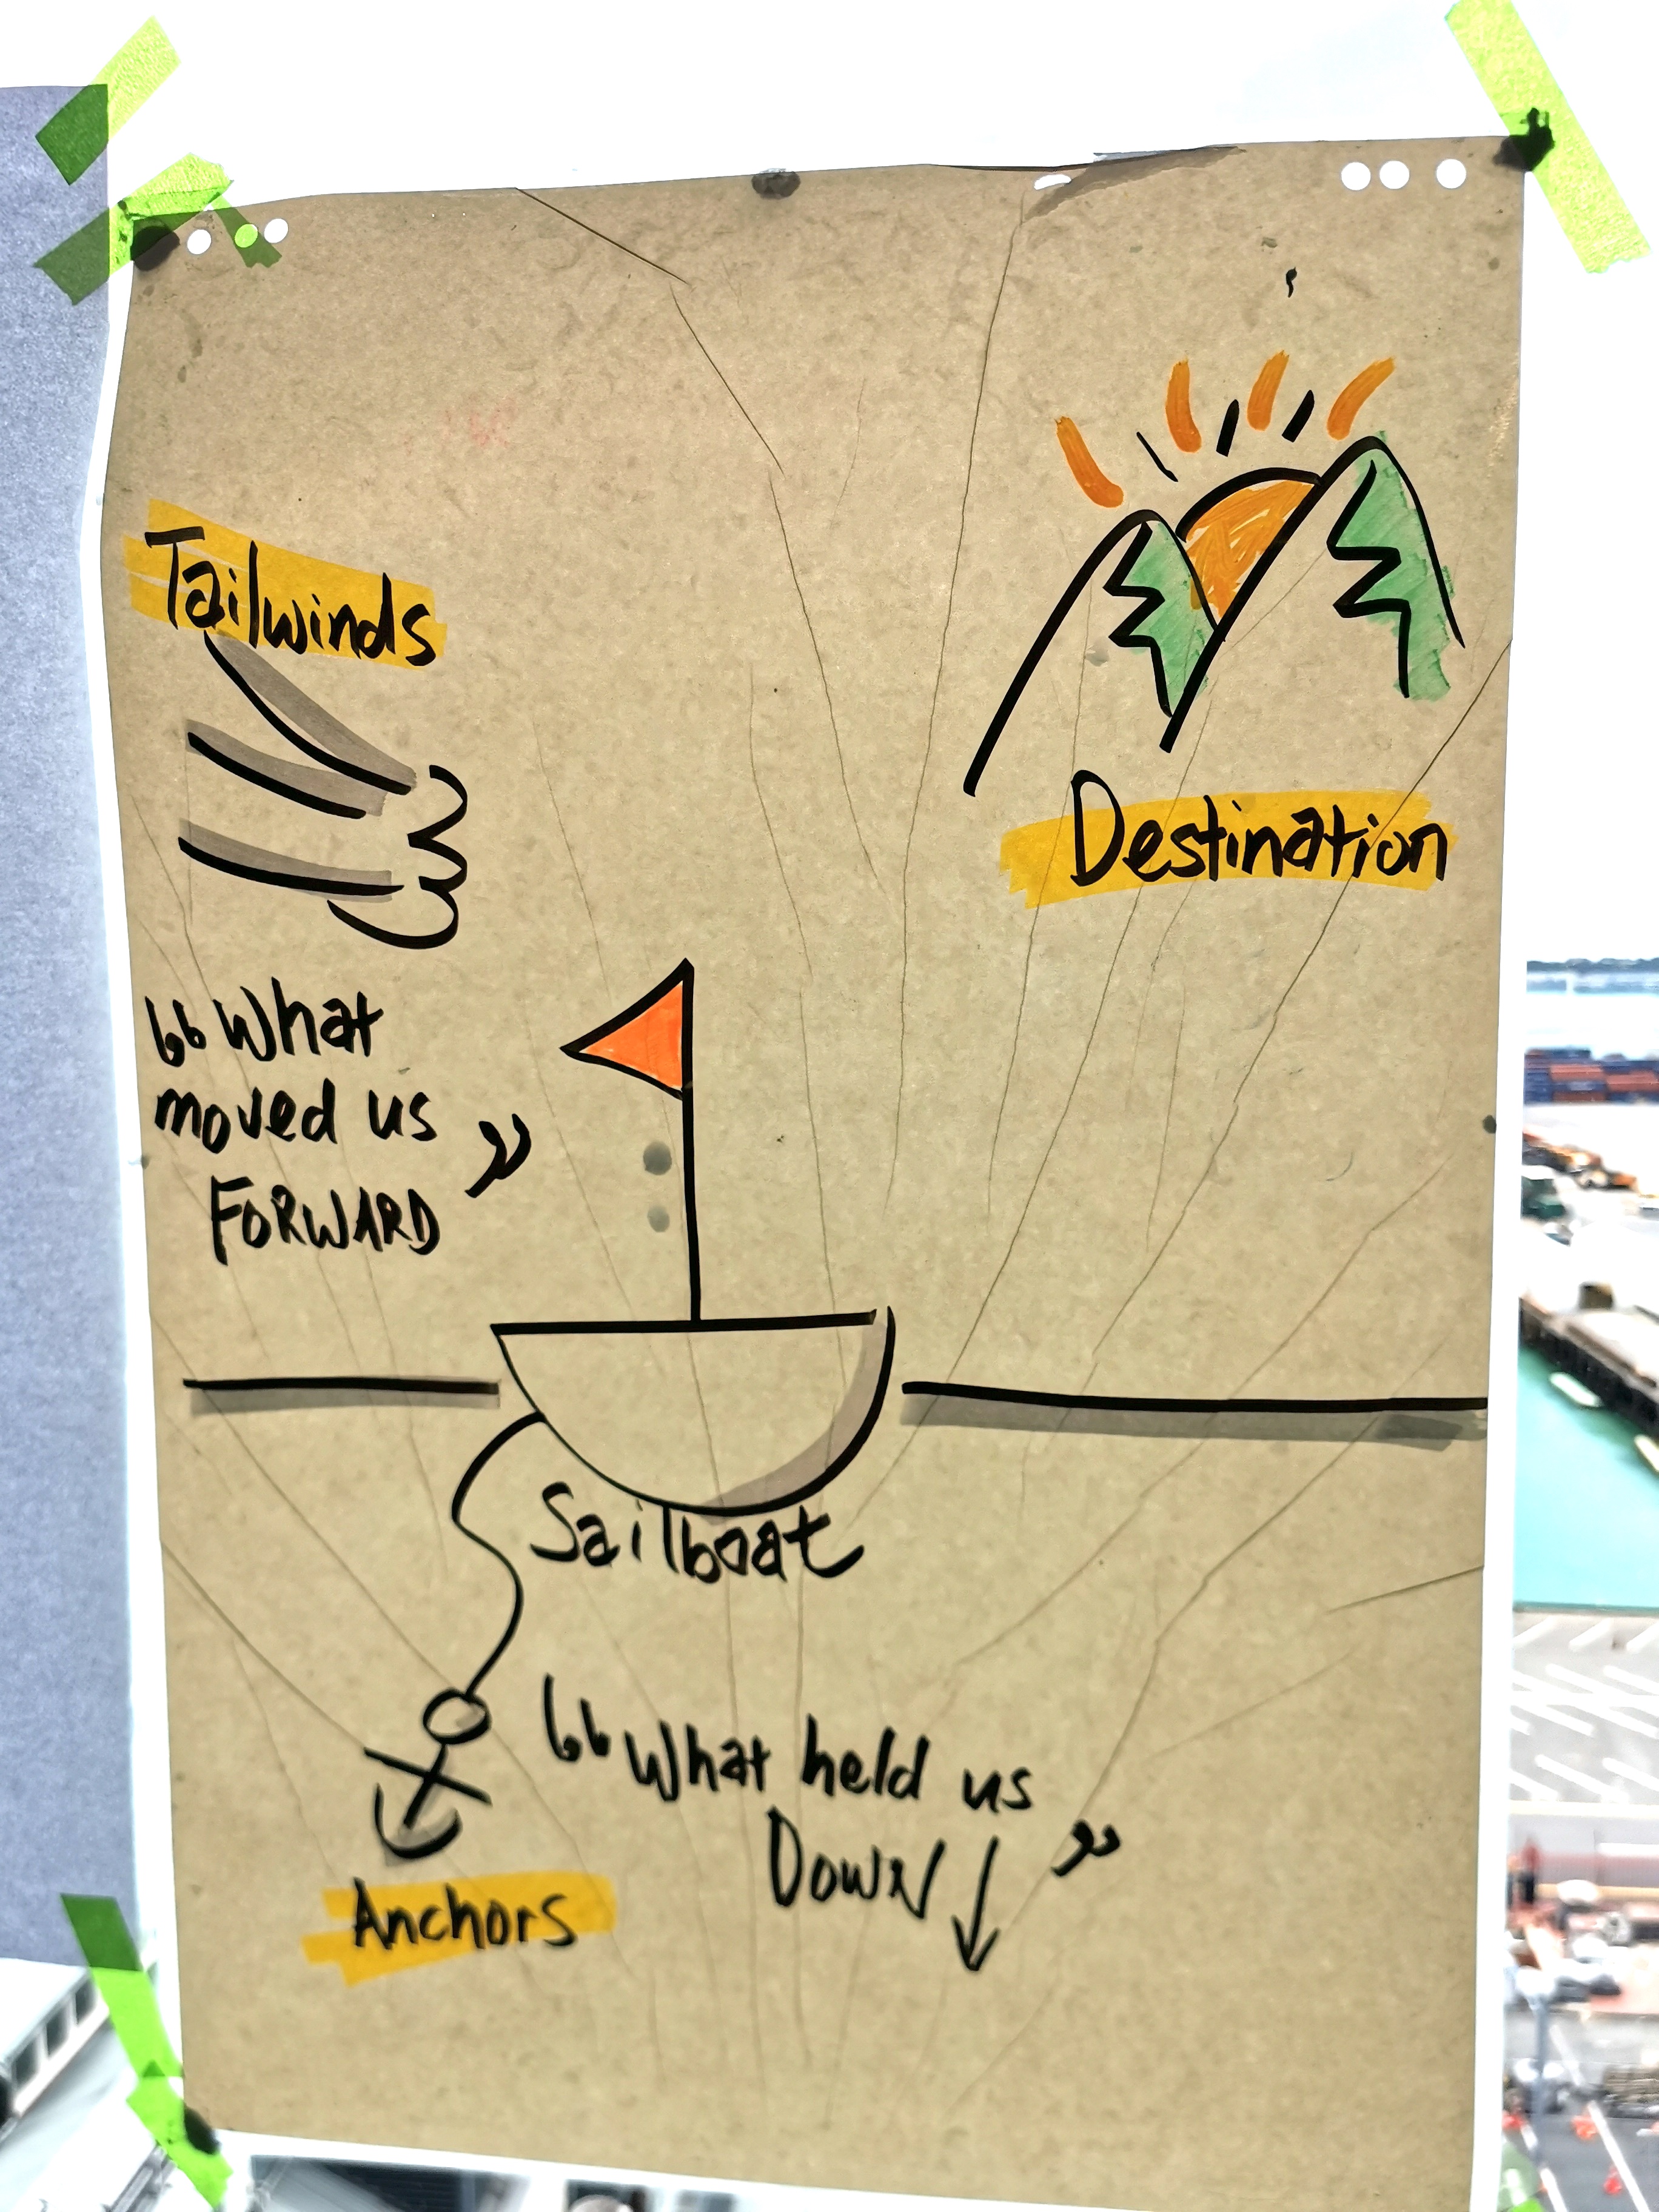 Tailwinds
Destination
“What
moved us
FORWARD”
Sailboat
“What held us
DOWN ↓”
Anchors